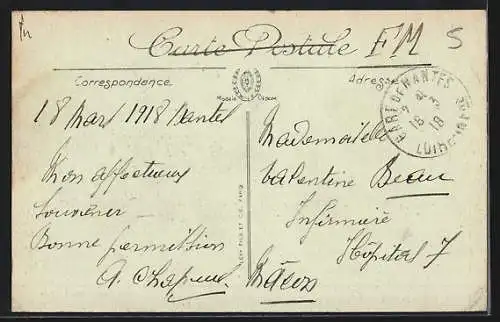 Carte Postale FM
Correspondance
Adresse
18 Mars 1918 Nantes
Mon affectueux
souvenir
Bonne permission
A. Chapeuil
Mademoiselle
Valentine Beau
Infirmière
Hôpital 7
Mâcon
GARE DE NANTES
18 3
18
LOIRE-INFRE